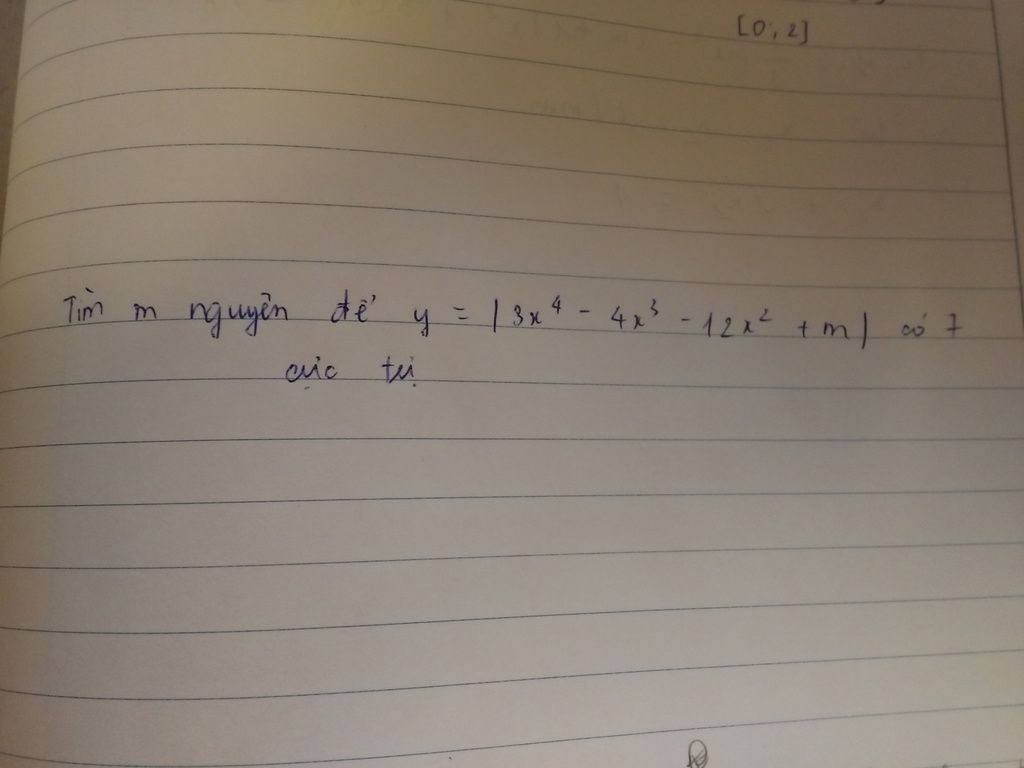 [0; 2]
Tìm m nguyên để y = |3x⁴ - 4x³ - 12x² + m| có 7
cực trị